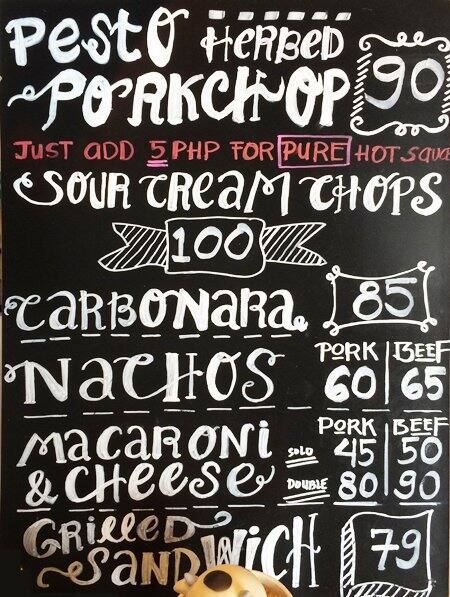 PESTO HERBED
PORKCHOP 90
JUST ADD 5 PHP FOR PURE HOT SAUCE
SOUR CREAM CHOPS
100
CARBONARA 85
PORK BEEF
NACHOS 60 65
PORK BEEF
MACARONI SOLO 45 50
& CHEESE DOUBLE 80 90
GRILLED
SANDWICH 79